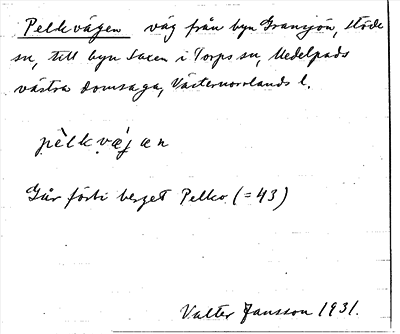 Pelkvägen väg från byn Gransjön, Stöde
sn, till byn Saxen i Torps sn, Medelpads
västra domsaga, Västernorrlands l.
pèlkvæ̀jan
Går förbi berget Pelko (= 43)
Valter Jansson 1931.